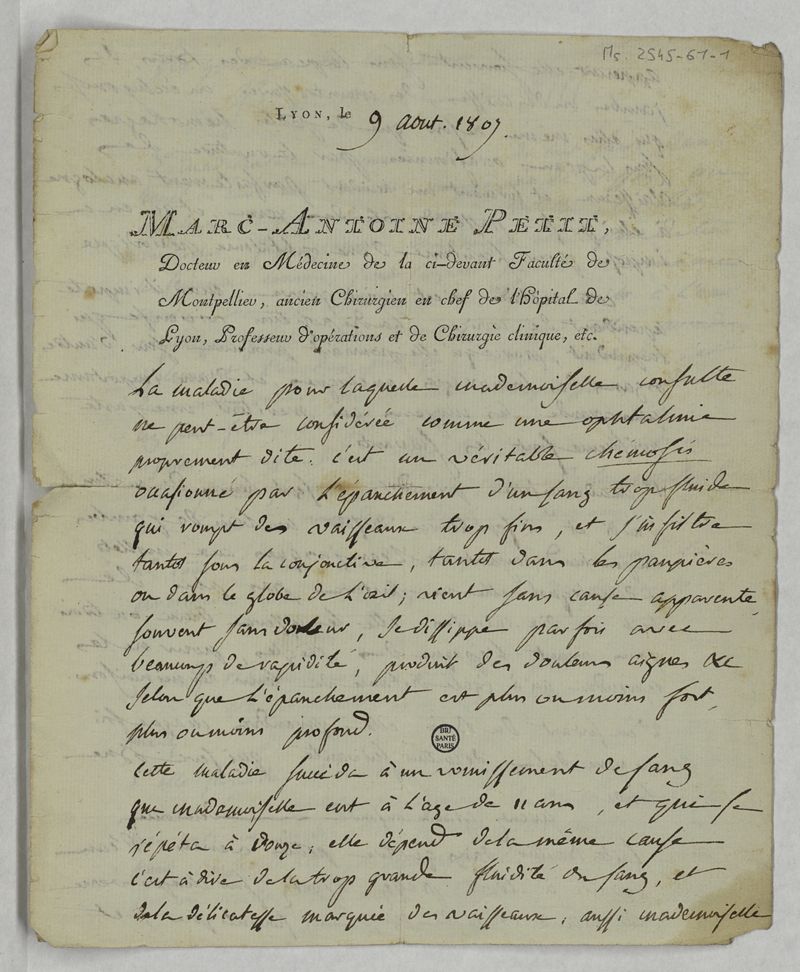 Ms. 2545-61-1
LYON, le 9 aout. 1807.
MARC-ANTOINE PETIT,
Docteur en Médecine de la ci-devant Faculté de
Montpellier, ancien Chirurgien en chef de l'Hôpital de
Lyon, Professeur d'opérations et de Chirurgie clinique, etc.
La maladie pour laquelle mademoiselle consulte
ne peut-être considérée comme une ophtalmie
proprement dite. c'est un véritable chémosis
occasionné par l'épanchement d'un sang trop fluide
qui rompt des vaisseaux trop fins, et s'infiltre
tantot sous la conjonctive, tantot dans les paupières
ou dans le globe de l'œil; vient sans cause apparente,
souvent sans douleur, se dissippe parfois avec
beaucoup de rapidité, produit des douleurs aigues &c
selon que l'épanchement est plus ou moins fort,
plus ou moins profond.
BIU
SANTÉ
PARIS
Cette maladie succéda à un vomissement de sang
que mademoiselle eut à l'age de 11 ans, et qui se
répéta à douze; elle dépend de la même cause
c'est à dire de la trop grande fluidité du sang, et
de la délicatesse marquée des vaisseaux; aussi mademoiselle